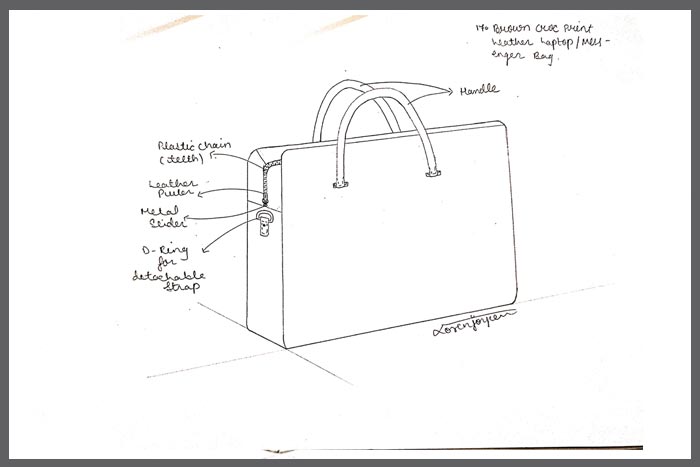 Brown Croc Print
Leather Laptop/Mess-
enger Bag.
Handle
Plastic chain
(teeth)
Leather
Puller
Metal
Slider
D-Ring
for
detachable
Strap